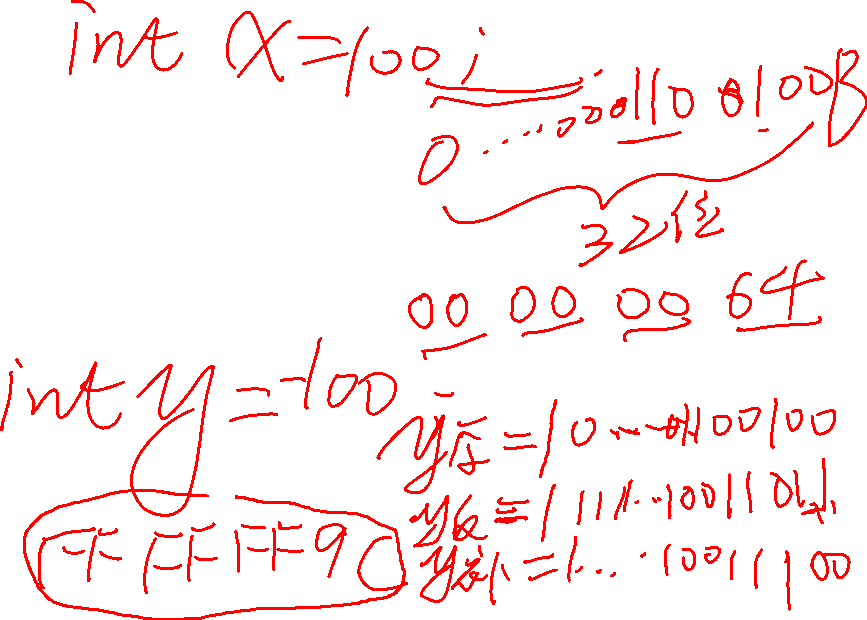 int x=100;
0·····000110 0100B
32位
00 00 00 64
int y=-100
y原=10·····1100100
y反=11111···10011011
y补=1····10011100
FF FF FF 9C